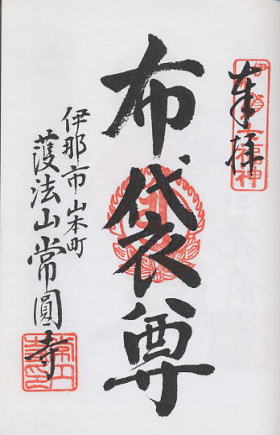 奉拝
布袋尊
伊那市山本町
護法山常圓寺